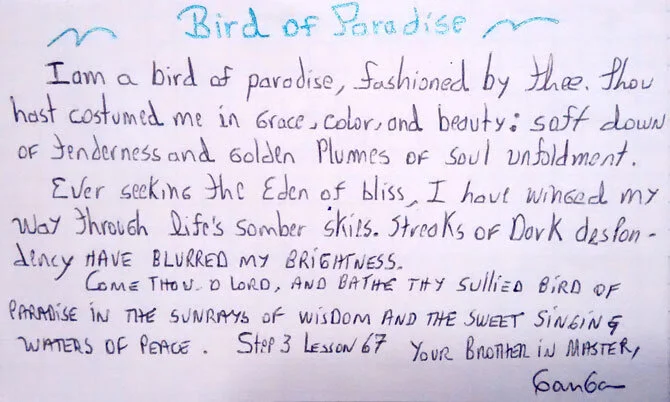 Bird of Paradise
I am a bird of paradise, fashioned by thee. Thou
hast costumed me in Grace, color, and beauty: soft down
of tenderness and Golden Plumes of soul unfoldment.
Ever seeking the Eden of bliss, I have winged my
way through life's somber skies. Streaks of Dark despon-
dency HAVE BLURRED MY BRIGHTNESS.
COME THOU, O LORD, AND BATHE THY SULLIED BIRD OF
PARADISE IN THE SUNRAYS OF WISDOM AND THE SWEET SINGING
WATERS OF PEACE. Step 3 Lesson 67 YOUR BROTHER IN MASTER,